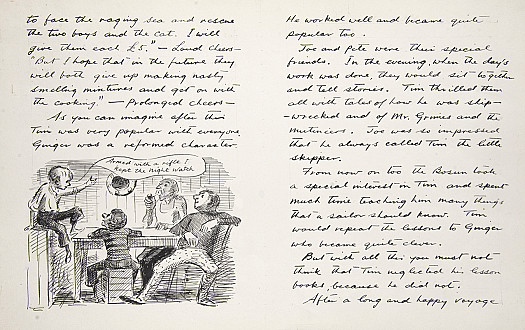 to face the raging sea and rescue
the two boys and the cat. I will
give them each £5." — Loud cheers —
"But I hope that in the future they
will both give up making nasty
smelling mixtures and get on with
the cooking." — Prolonged cheers —
As you can imagine after this
Tim was very popular with everyone
Ginger was a reformed character.
Armed with a rifle I
kept the night watch
He worked well and became quite
popular too.
Joe and Pete were their special
friends. In the evening, when the day's
work was done, they would sit together
and tell stories. Tim thrilled them
all with tales of how he was ship-
-wrecked and of Mr. Grimes and the
Mutineers. Joe was so impressed
that he always called Tim the little
skipper.
From now on too the Bosun took
a special interest in Tim and spent
much time teaching him many things
that a sailor should know. Tim
would repeat the lessons to Ginger
who became quite clever.
But with all this you must not
think that Tim neglected his lesson
books, because he did not.
After a long and happy voyage